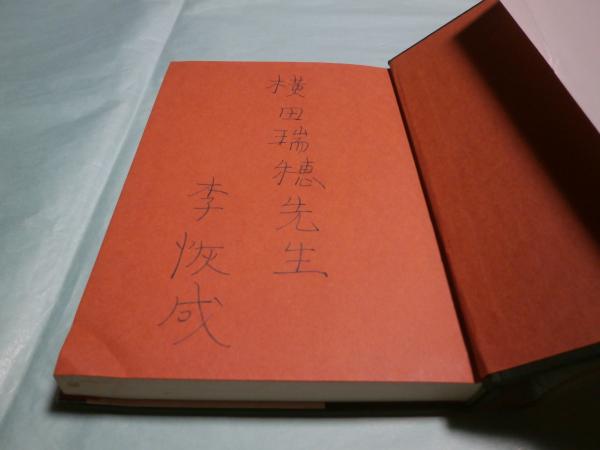 横田瑞穂先生
李恢成